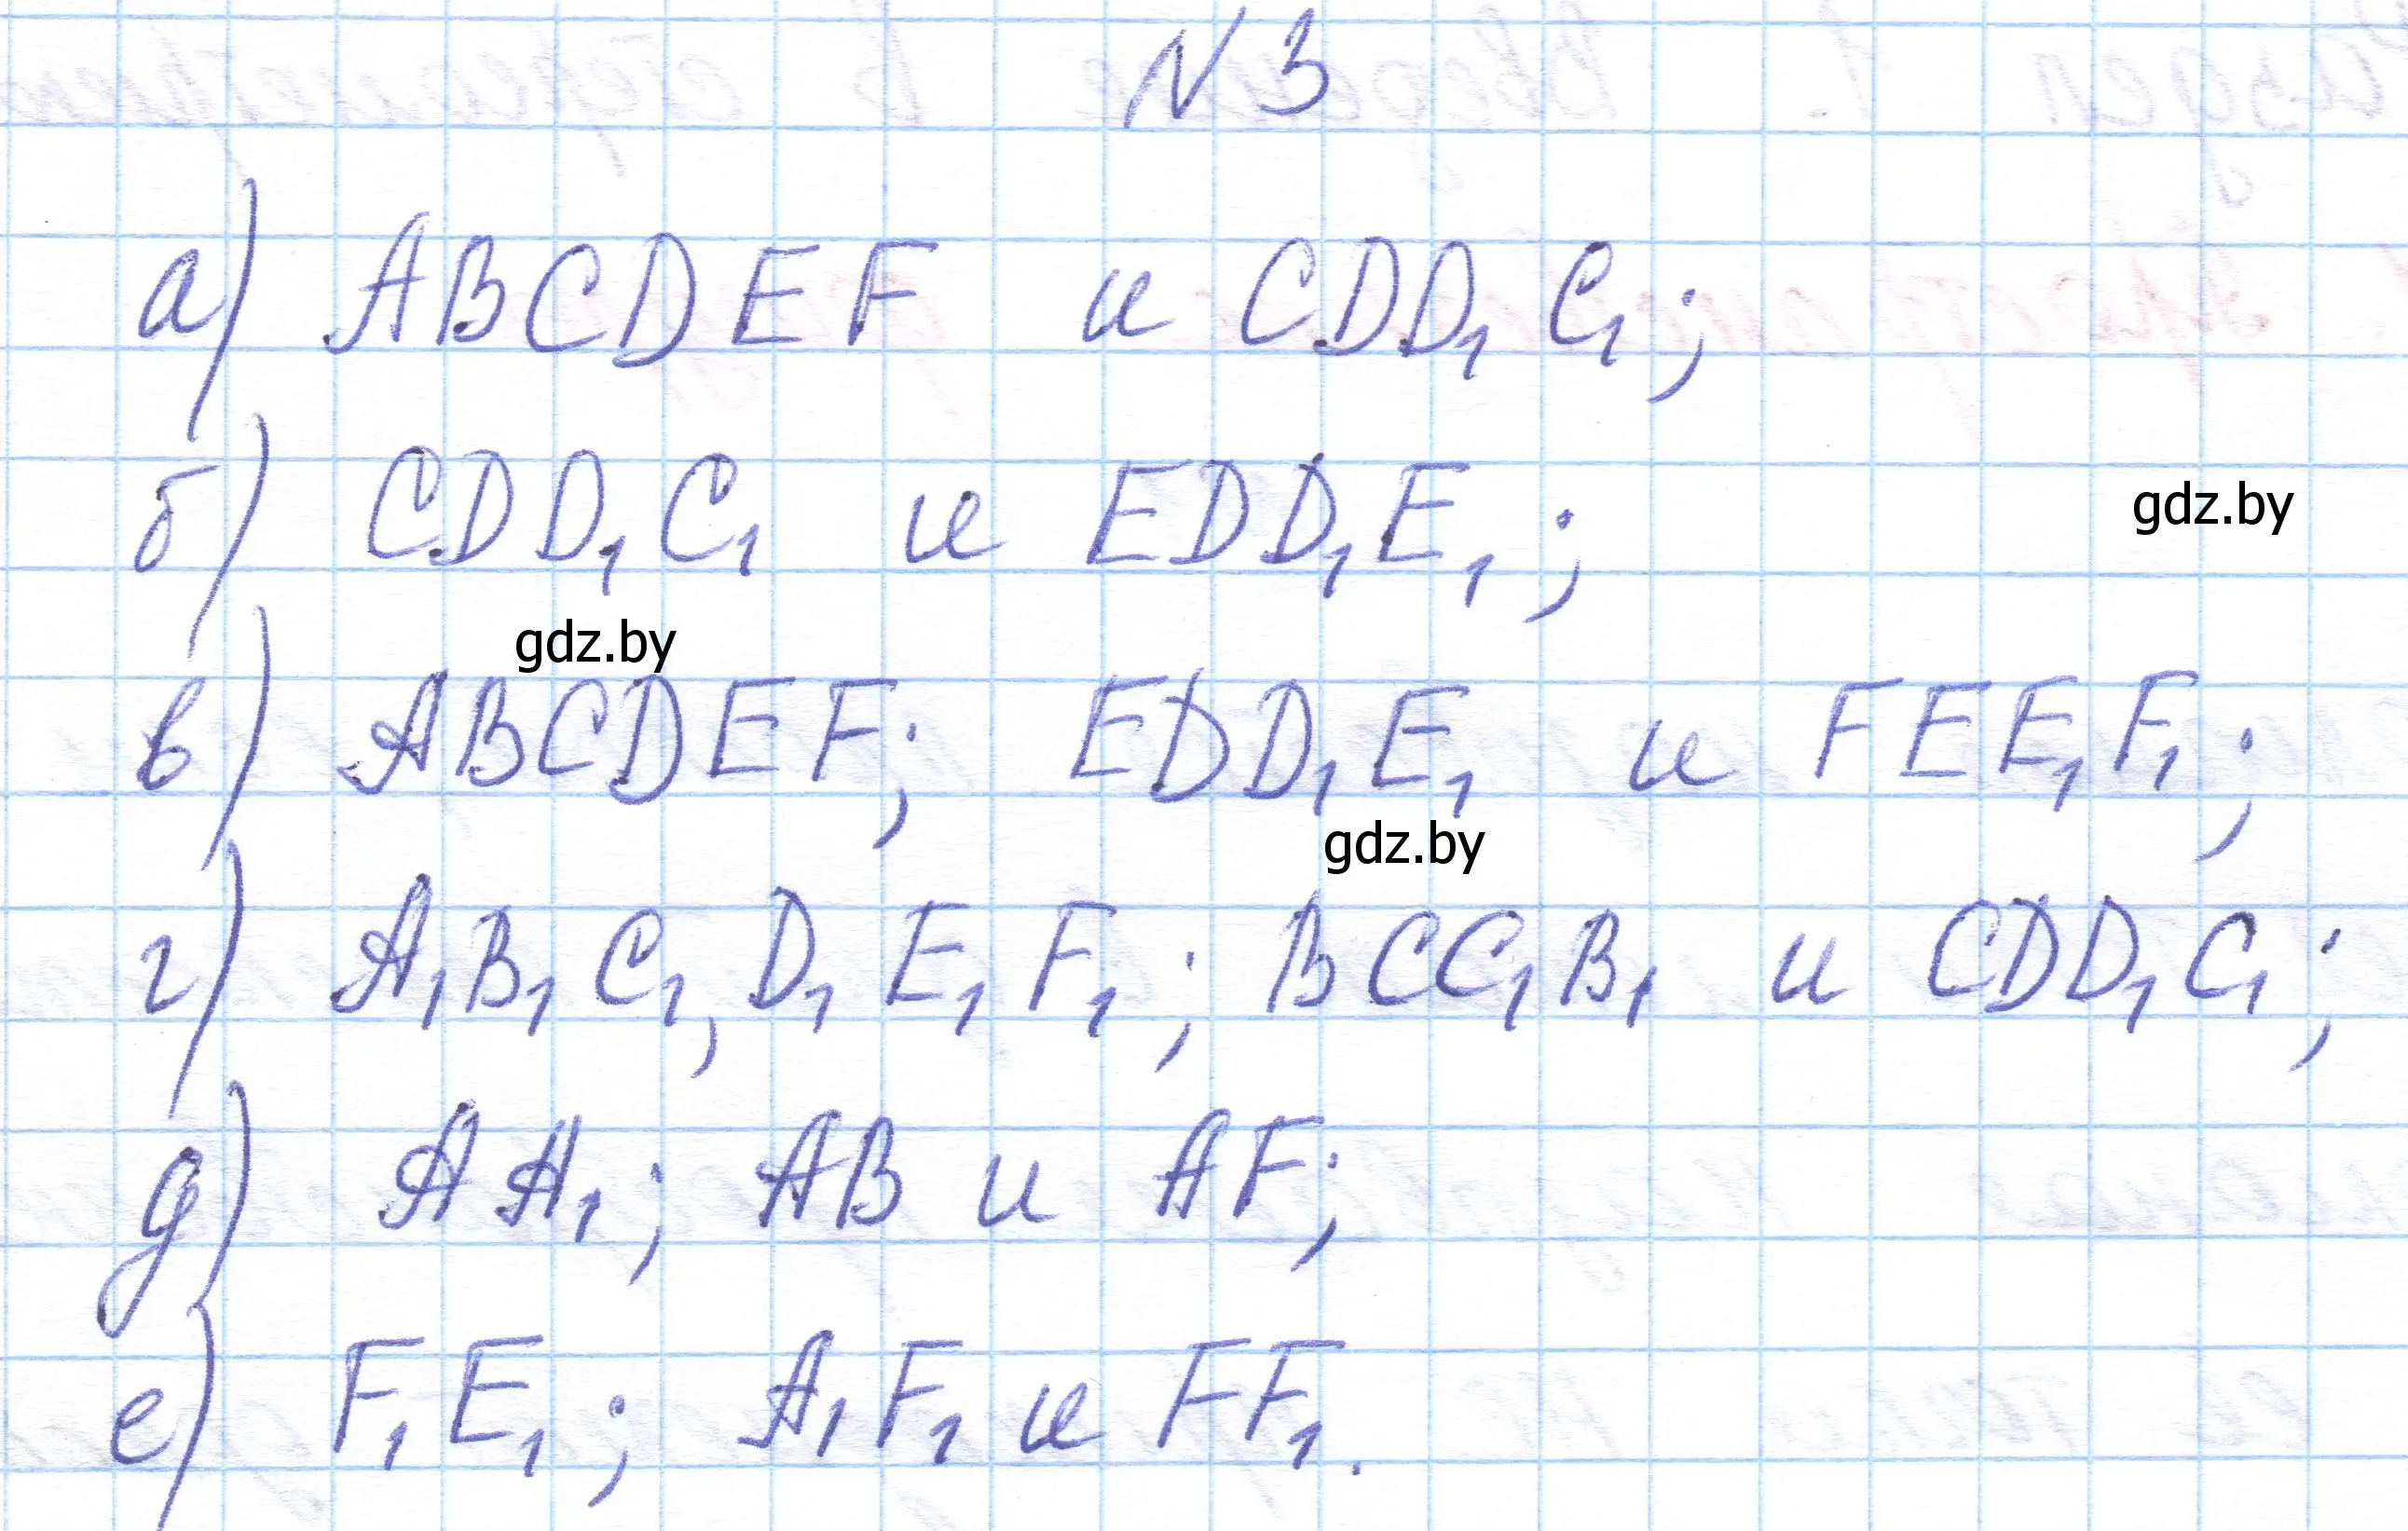 N 3
а) ABCDEF и CDD₁C₁;
б) CDD₁C₁ и EDD₁E₁;
gdz.by
gdz.by
в) ABCDEF; EDD₁E₁ и FEE₁F₁;
gdz.by
г) A₁B₁C₁,D₁E₁F₁; BCC₁B₁ и CDD₁C₁;
д) AA₁; AB и AF;
е) F₁E₁; A₁F₁ и FF₁.